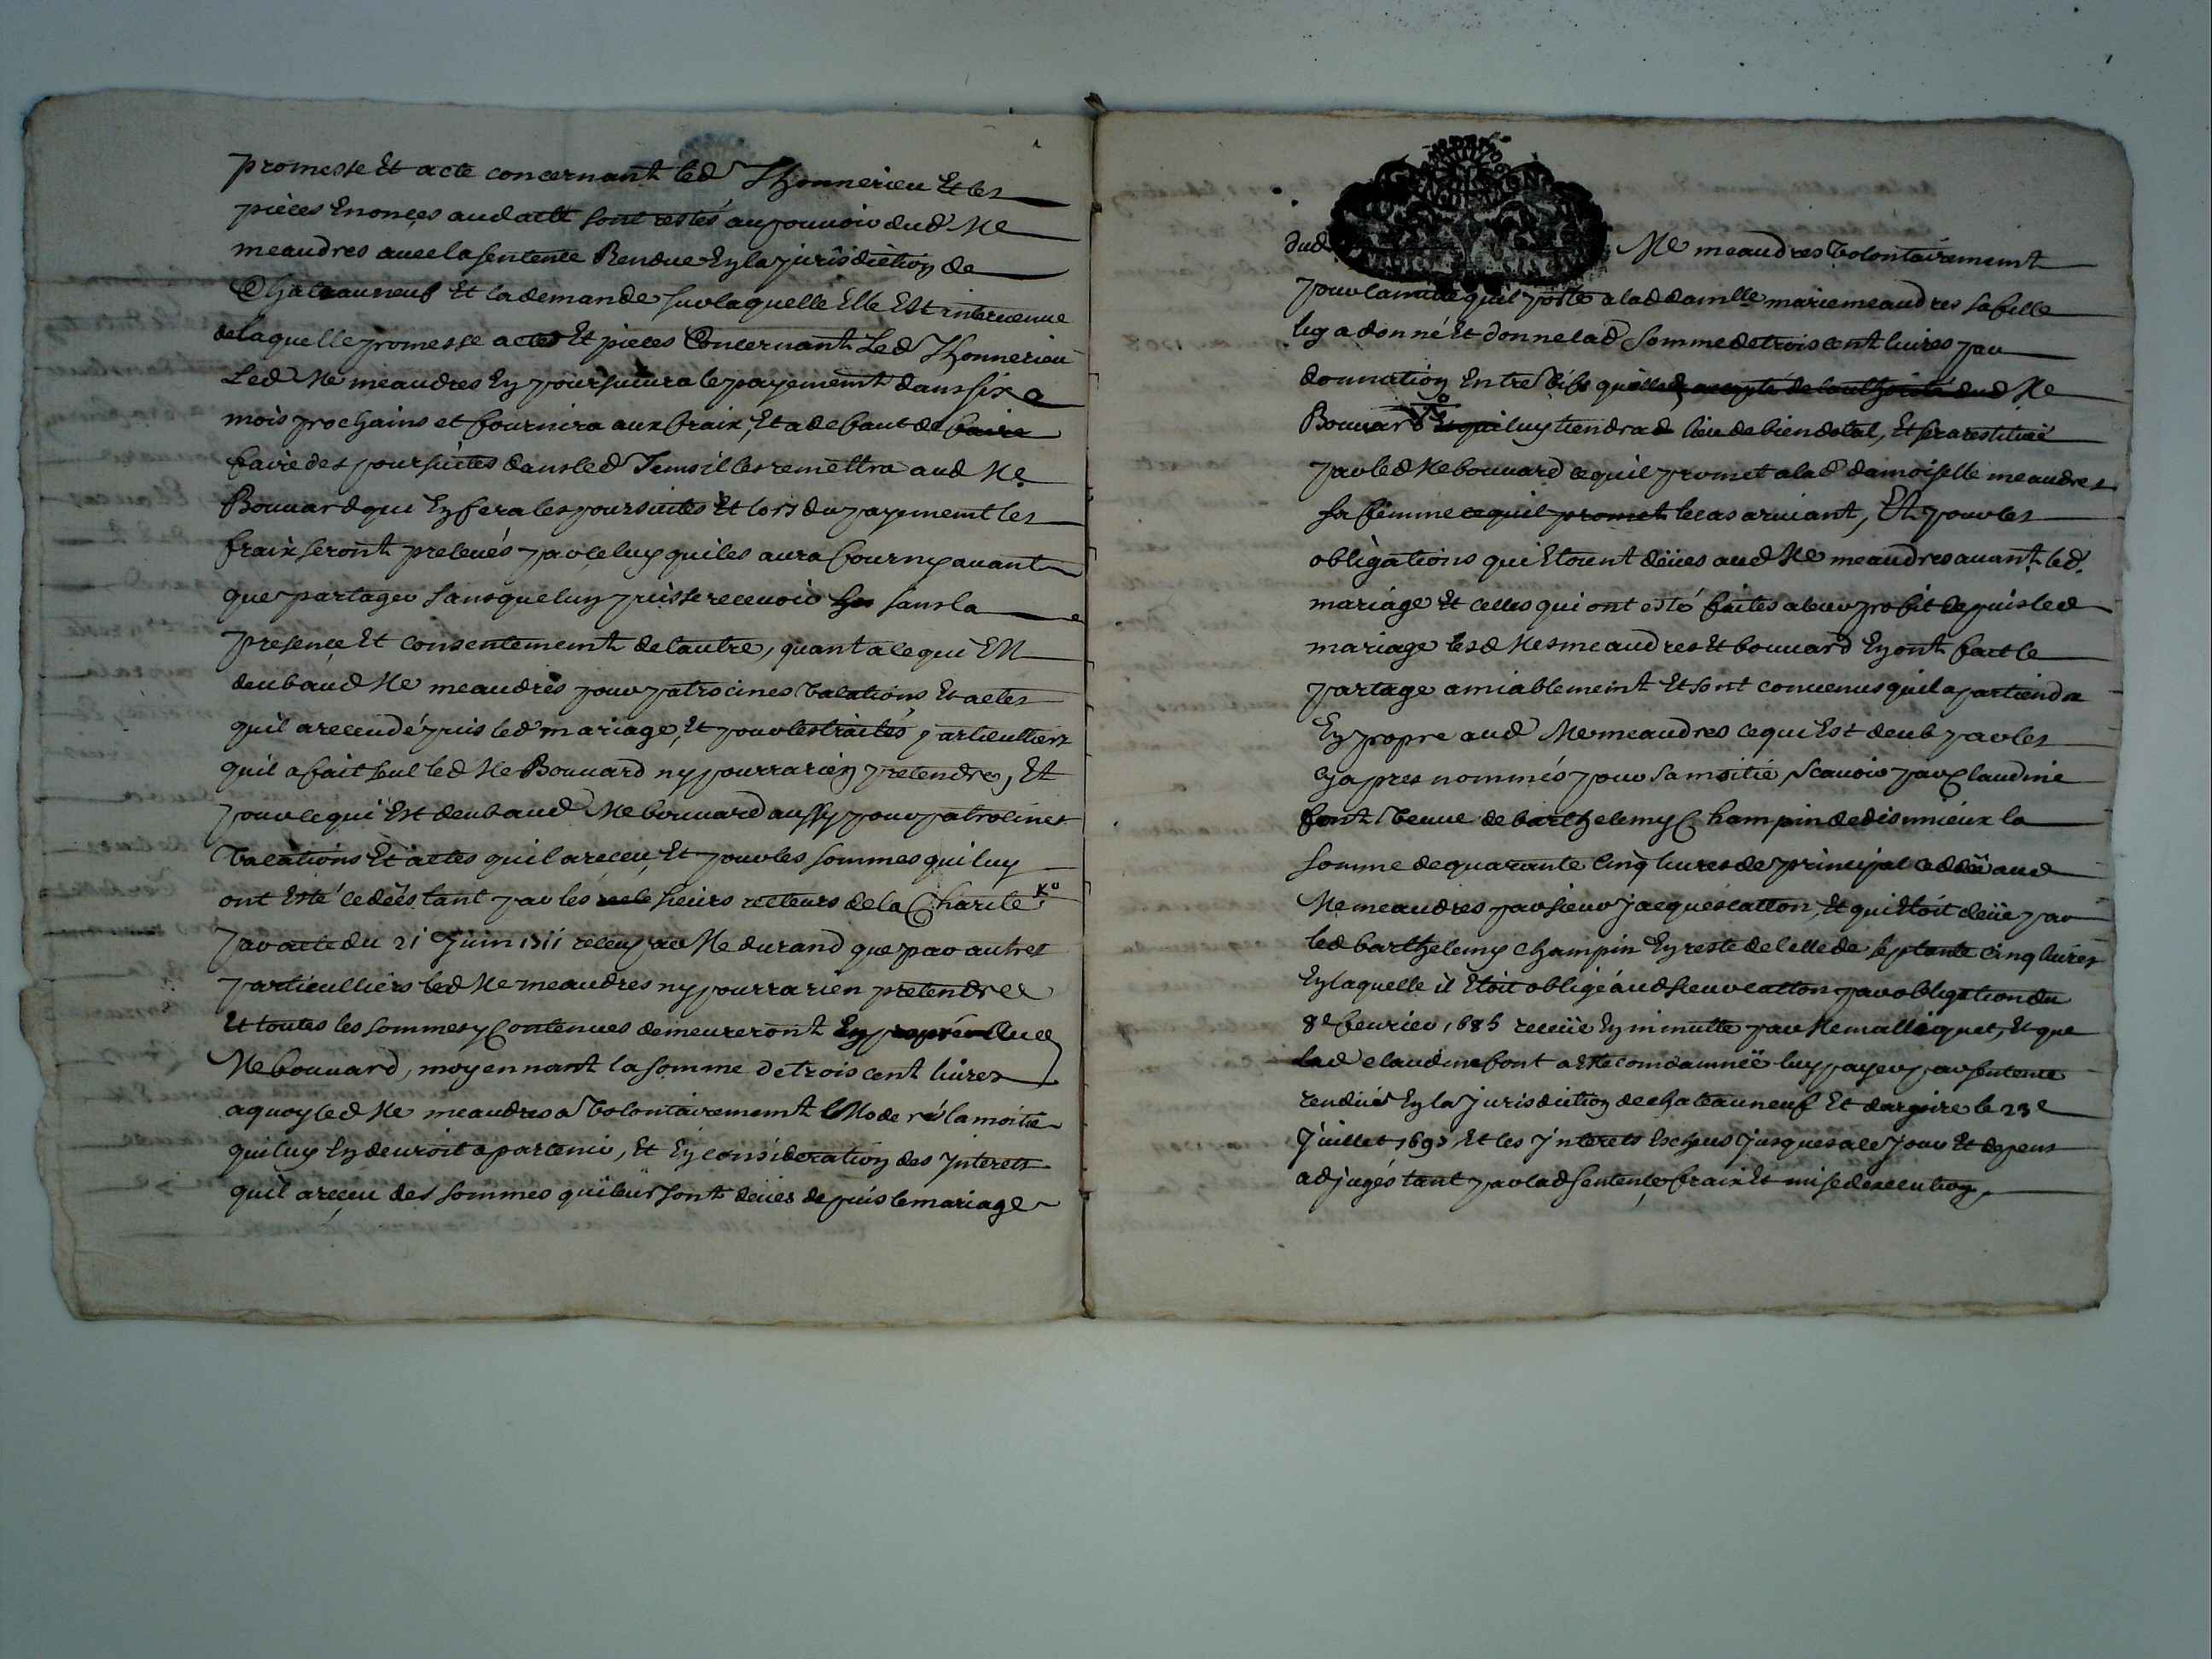 promesse Et acte concernant led Thonnerieu Et les
pièces Enonçes aud acte sont restés au pouvoir dud Me
meandres avec la sentence Rendue En la jurisdiction de
Chateauneuf Et la demande sur laquelle Elle Est intervenue
de laquelle promesse actes Et pieces Concernant Led Thonnerieu
Led Me meandres En poursuivra le payememt dans six
mois prochains et fournira aux fraix, Et a defaut de faire
faire des poursuites dans led Tems il les remettra aud Me
Bouvard qui En fera les poursuites Et lors du payememt les
fraix seront prelevés par celuy qui les aura fourny avant
que partager sans que lun puisse recevoir sans la
presence Et consentememt de lautre, quant a ce qui Est
deub aud Me meandres pour patrocines vacations Et actes
quil a receu dépuis led mariage, Et pour les traités particulliers
quil a fait seul led Me Bouvard ny pourra rien pretendre, Et
pour ce qui Est deub aud Me bouvard aussy pour patrocines
vacations Et actes quil a receu, Et pour les sommes qui luy
ont Esté cedées tant par les sieurs recteurs de la Charité
par acte du 21 Juin 1711 receu par Me durand que par autres
particulliers led Me meandres ny pourra rien pretendre
Et toutes les sommes y Contenues demeureront En propre aud
Me bouvard, moyennant la somme de trois cent livres
a quoy led Me meandres a volontairememt moderé la moitié
qui luy En devroit apartenir, Et En consideration des Interets
quil a receu des sommes qui leur sont deües depuis le mariage
dud Me meandres volontairememt
pour lamitié quil porte a lad damlle marie meandres sa fille
luy a donné Et donne lad somme de trois cent livres par
donnation Entre vifs quelle accepté de lauthorité dud Me
Bouvard et qui luy tiendra lieu de bien dotal, Et sera restituée
par led Me bouvard ce quil promet a lad damoiselle meandres
sa femme ce quil promet le cas arrivant, Et pour les
obligations qui Etoient deües aud Me meandres avant led
mariage Et celles qui ont esté faites a leur profit depuis led
mariage lesd Mes meandres Et bouvard En ont fait le
partage amiablememt Et sont convenus quil apartiendra
En propre aud Me meandres ce qui Est deub par les
cy apres nommés pour sa moitié Scavoir par Claudine
font veuve de barthelemy Champin de disimieux la
somme de quarante cinq livres de principal cedée aud
Me meandres par sieur jacques catton, Et qui Etoit deüe par
led barthelemy champin En reste de celle de septante cinq livres
En laquelle il Etoit obligé aud sieur catton par obligation du
8e fevrier 1685 receüe En minutte par Me malliquet, Et que
lad claudine font a Eté condamnée luy payer par sentence
rendüe En la Jurisdiction de chateauneuf Et dargoire le 23e
Juillet 1693, Et les Interets Escheus jusques a ce jour Et depens
adjugés tant par lad sentence fraix Et mise dexecution